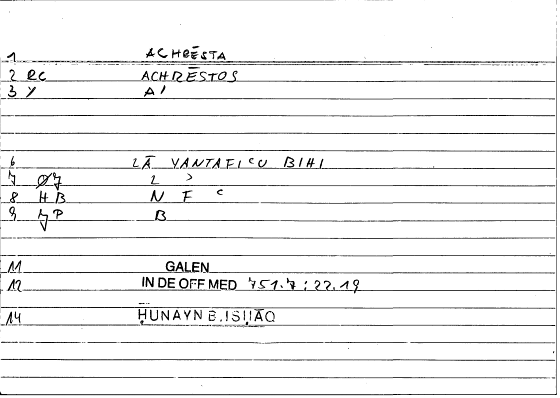 1 ACHRĒSTA
2 RC ACHRĒSTOS
3 Y A ʾ
6 LĀ YANTAFIʿU BIHI
7 Ø7 L ʾ
8 HB N F ʿ
9 7P B
11 GALEN
12 IN DE OFF MED 751.7 : 22.19
14 ḤUNAYN B.ISḤĀQ